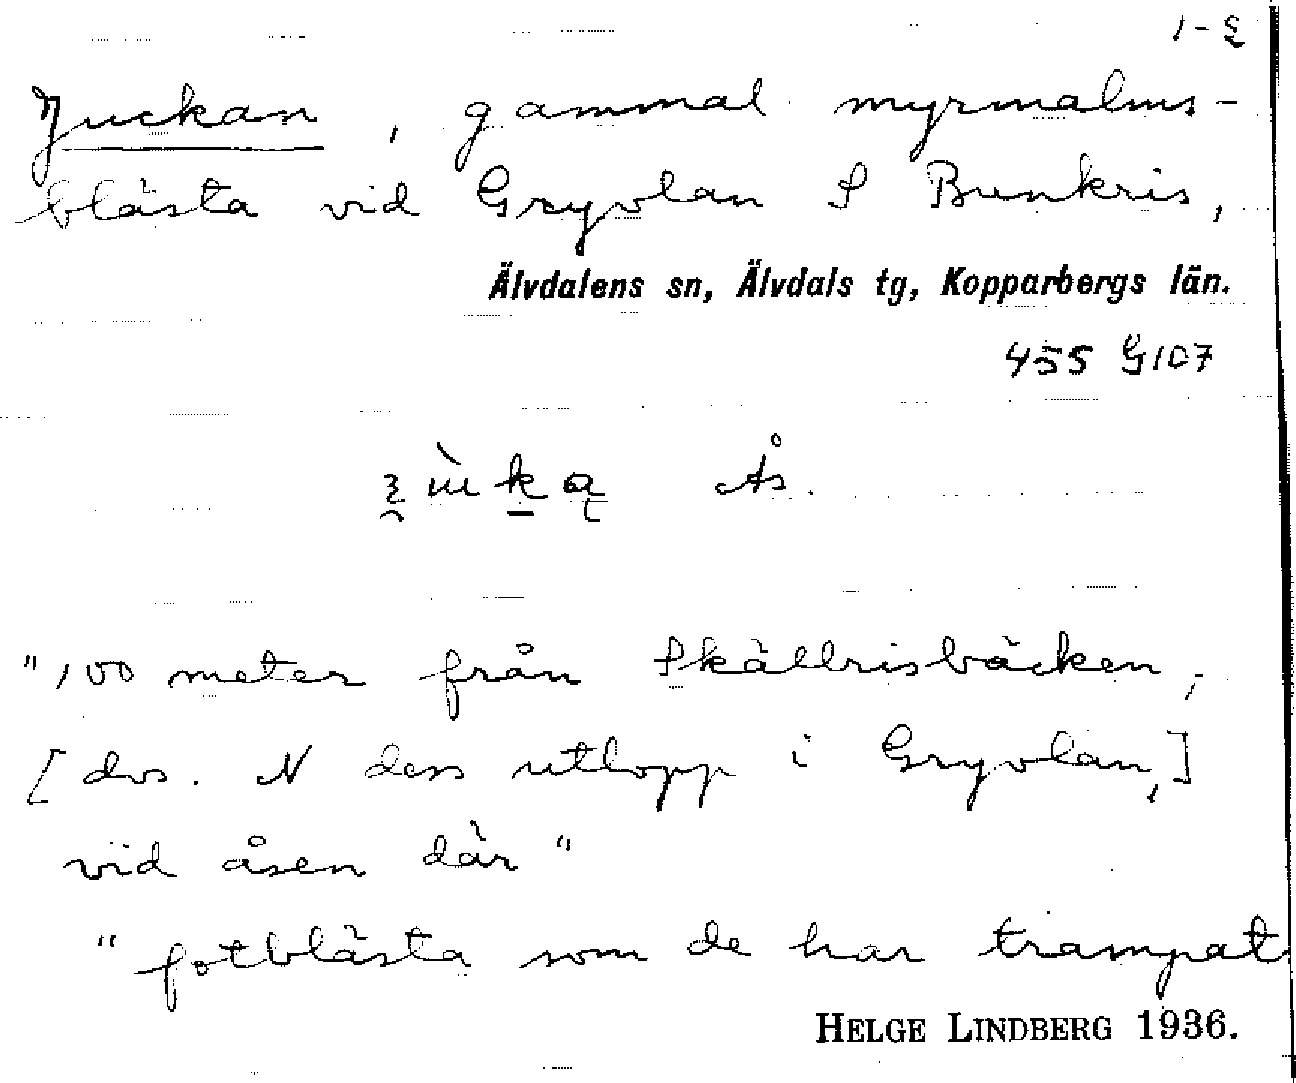 Juckan, gammal myrmalms-
blästa vid Gryvlan S Bunkris,
Älvdalens sn, Älvdals tg, Kopparbergs län.
455 G107
Ås.
"100 meter från Skällrisbäcken,
[dvs. N dess utlopp i Gryvlan,]
vid åsen där"
"fotblästa som de har trampat
HELGE LINDBERG 1936.